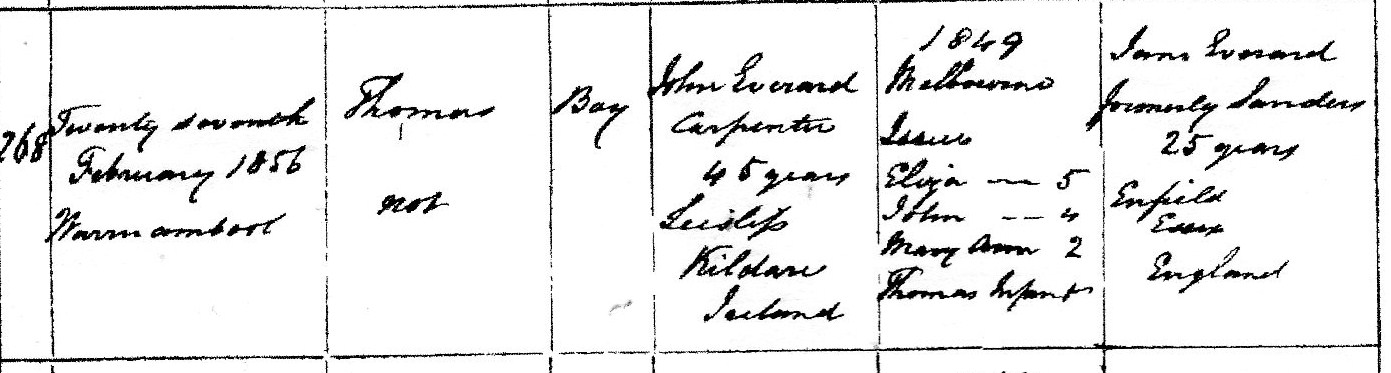 268
Twenty seventh
February 1856
Warrnambool
Thomas
not
Boy
John Everard
Carpenter
45 years
Leislip
Kildare
Ireland
1849
Melbourne
Issue
Eliza — 5
John -- 4
Mary Ann 2
Thomas Infant
Jane Everard
formerly Sanders
25 years
Enfield
Essex
England